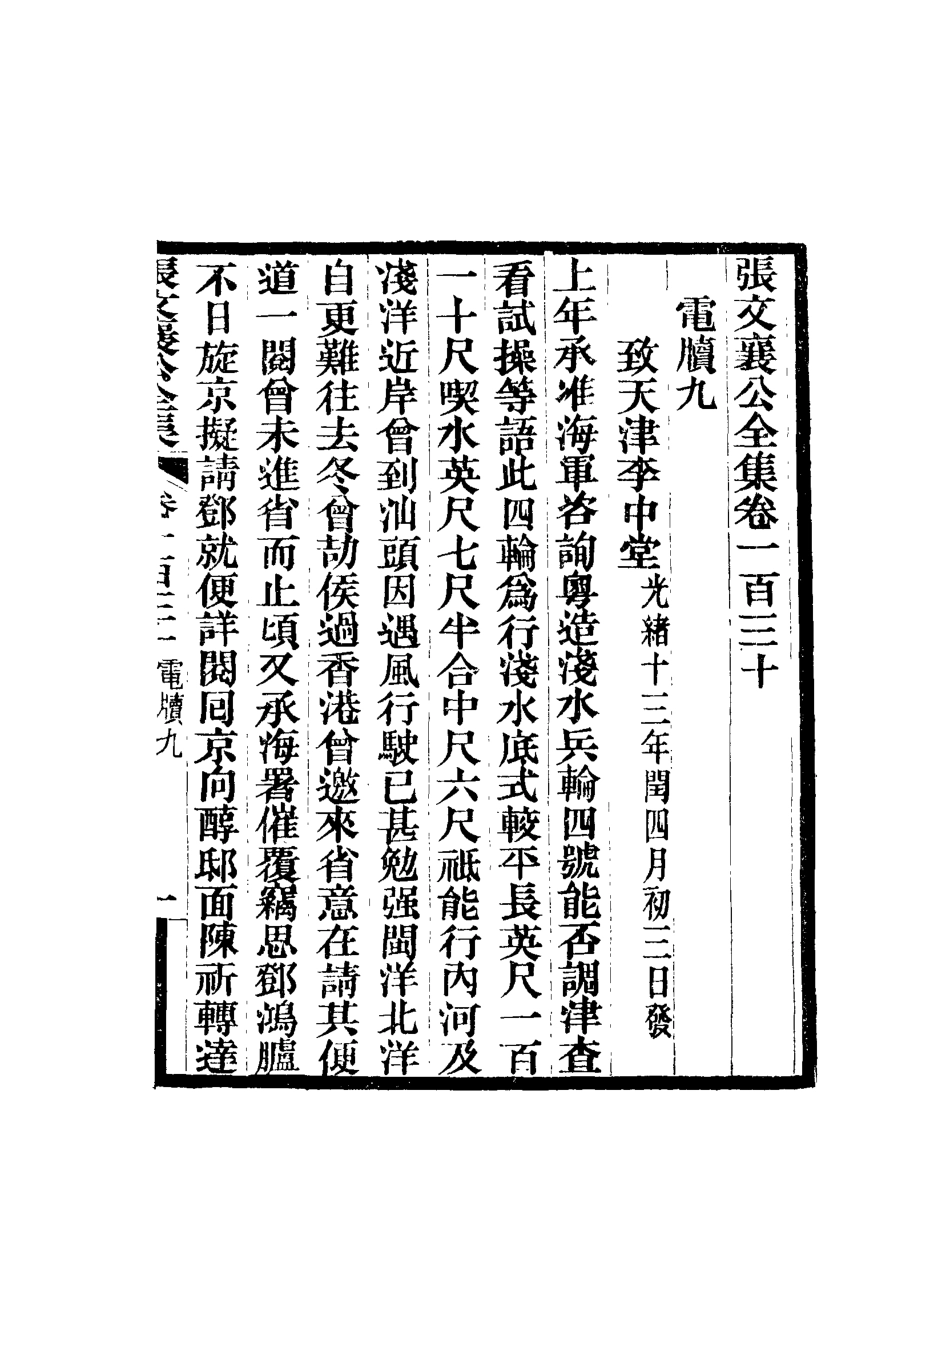 張文襄公全集卷一百三十
電牘九
致天津李中堂光緒十三年閏四月初三日發
上年承准海軍咨詢粵造淺水兵輪四號能否調津查
看試操等語此四輪爲行淺水底式較平長英尺一百
一十尺喫水英尺七尺半合中尺六尺祗能行內河及
淺洋近岸曾到汕頭因遇風行駛已甚勉强閩洋北洋
自更難往去冬曾劼侯過香港曾邀來省意在請其便
道一閱曾未進省而止頃又承海署催覆竊思鄧鴻臚
不日旋京擬請鄧就便詳閱囘京向醇邸面陳祈轉達
張文襄公全集 卷一百三十 電牘九 一